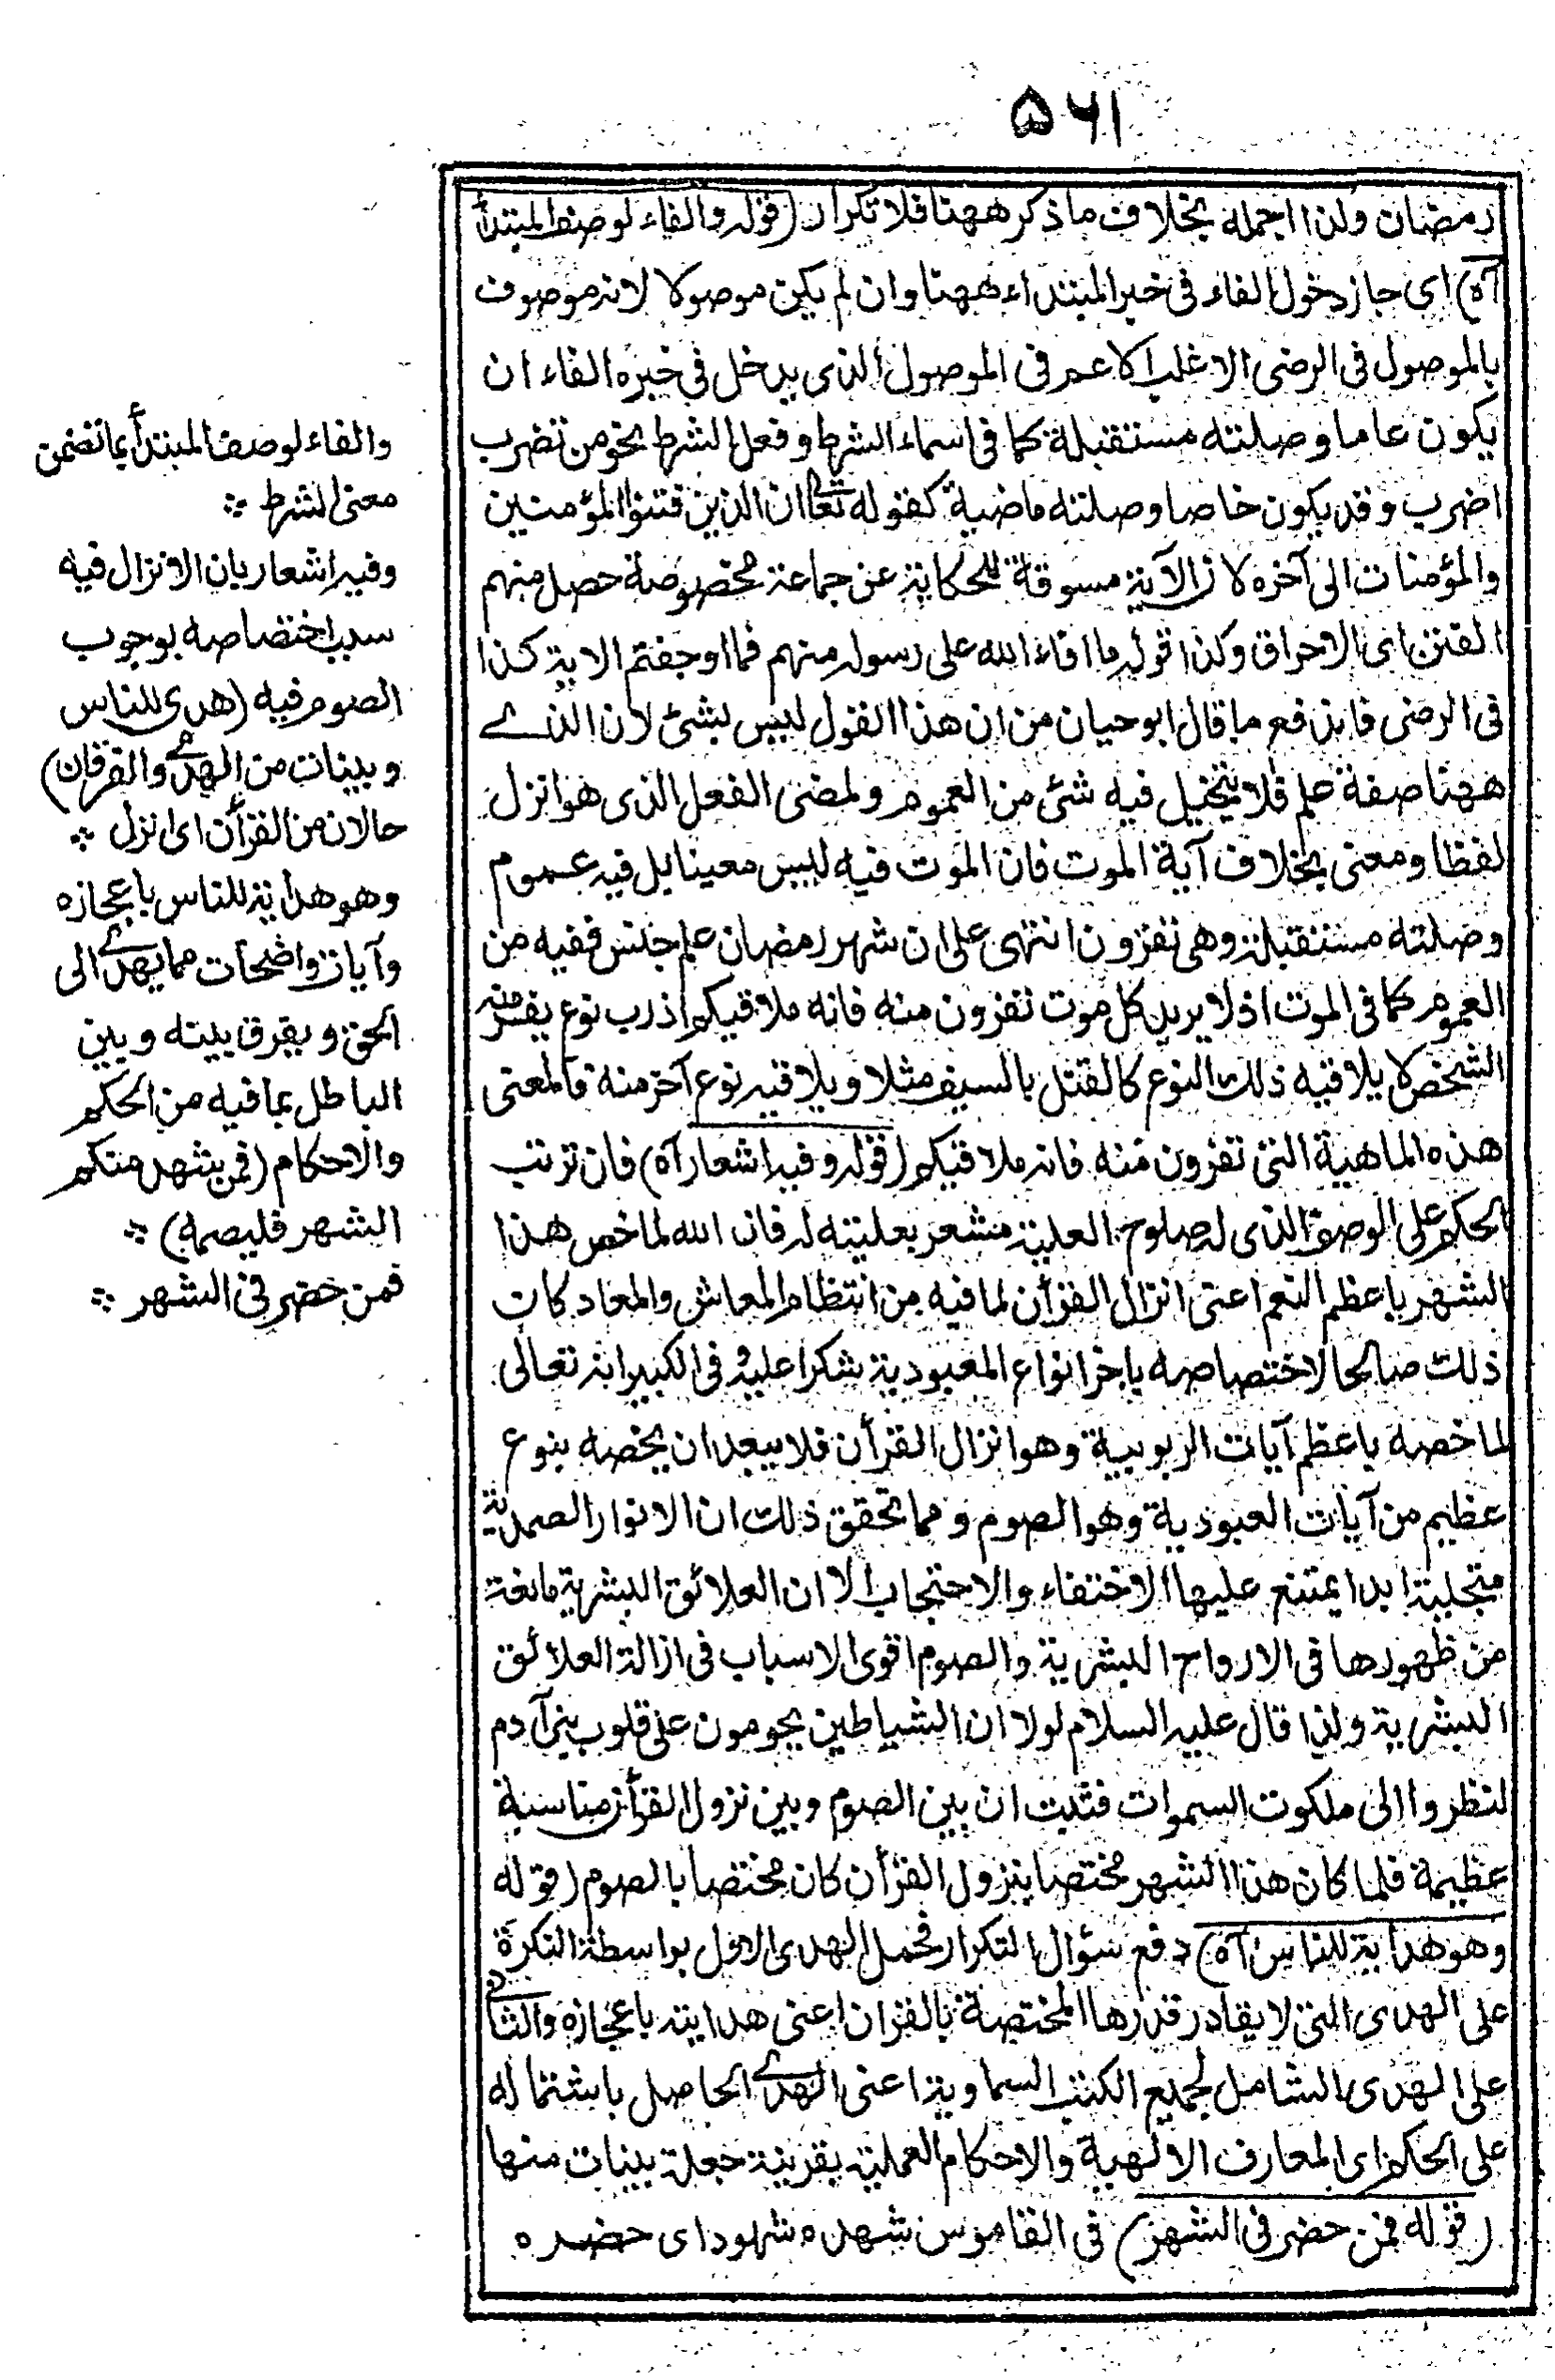 ۵۶۱
رمضان ولذا اجمله بخلاف ما ذكر ههنا فلا تكرار (قوله والفاء لوصف المبتدأ
آه) اى جاز دخول الفاء فى خبر المبتداء ههنا وان لم يكن موصولا لانه موصوف
بالموصول فى الرضى الاغلب الاعم فى الموصول الذى يدخل فى خبره الفاء ان
يكون عاما وصلته مستقبلة كما فى اسماء الشرط وفعل الشرط نحو من تضرب
اضرب وقد يكون خاصا وصلته ماضية كقوله تعا ان الذين فتنوا المؤمنين
والمؤمنات الى آخره لان الآية مسوقة للحكاية عن جماعة مخصوصة حصل منهم
الفتن اى الاحراق وكذا قوله ما افاء الله على رسوله منهم فما اوجفتم الاية كذا
فى الرضى فاندفع ما قال ابو حيان من ان هذا القول ليس بشئ لان الذے
ههنا صفة علم فلا يتخيل فيه شئ من العموم ولمضى الفعل الذى هو انزل
لفظا ومعنى بخلاف آية الموت فان الموت فيه ليس معينا بل فيه عموم
وصلته مستقبلة وهى تفرون انتهى على ان شهر رمضان علم جنس ففيه من
العموم كما فى الموت اذ لا يريد كل موت تفرون منه فانه ملاقيكم اذ رب نوع يفر منه
الشخص لا يلاقيه ذلك النوع كالقتل بالسيف مثلا ويلاقيه نوع آخر منه فالمعنى
هذه الماهية التى تفرون منه فانه ملاقيكم (قوله وفيه اشعار آه) فان ترتب
الحكم على الوصف الذى له صلوح العلية مشعر بعليته له فان الله لما خص هذا
الشهر باعظم النعم اعنى انزال القرأن لما فيه من انتظام المعاش والمعاد كان
ذلك صالحا لاختصاصه باخر انواع المعبودية شكرا عليه وفى الكبير انه تعالى
لما خصه باعظم آيات الربوبية وهو انزال القرأن فلا يبعد ان يخصه بنوع
عظيم من آيات العبودية وهو الصوم ومما تحقق ذلك ان الانوار الصمدية
متجلية ابدا يمتنع عليها الاختفاء والاحتجاب الا ان العلائق البشرية مانعة
من ظهورها فى الارواح البشرية والصوم اقوى الاسباب فى ازالة العلائق
البشرية ولذا قال عليه السلام لولا ان الشياطين يحومون على قلوب بنى آدم
لنظروا الى ملكوت السموات فثبت ان بين الصوم وبين نزول القرأن مناسبة
عظيمة فلما كان هذا الشهر مختصا بنزول القرأن كان مختصا بالصوم (قوله
وهو هداية للناس آه) دفع سؤال التكرار فحمل الهدى الاول بواسطة النكرة
على الهدى التى لا يقادر قدرها المختصة بالقران اعنى هدايته باعجازه والثانى
على الهدى الشامل لجميع الكتب السماوية اعنى الهدے الحاصل باشتماله
على الحكم اى المعارف الالهية والاحكام العملية بقرينة جعله بينات منها
(قوله فمن حضر فى الشهر) فى القاموس شهده شهودا اى حضره
والفاء لوصف المبتدأ بما تضمن
معنى الشرط
وفيه اشعار بان الانزال فيه
سبب اختصاصه بوجوب
الصوم فيه (هدى للناس
وبينات من الهدے والفرقان)
حالان من القرأن اى انزل
وهو هداية للناس باعجازه
وآيات واضحات مما يهدے الى
الحق ويفرق بينه وبين
الباطل بما فيه من الحكم
والاحكام (فمن شهد منكم
الشهر فليصمه)
فمن حضر فى الشهر